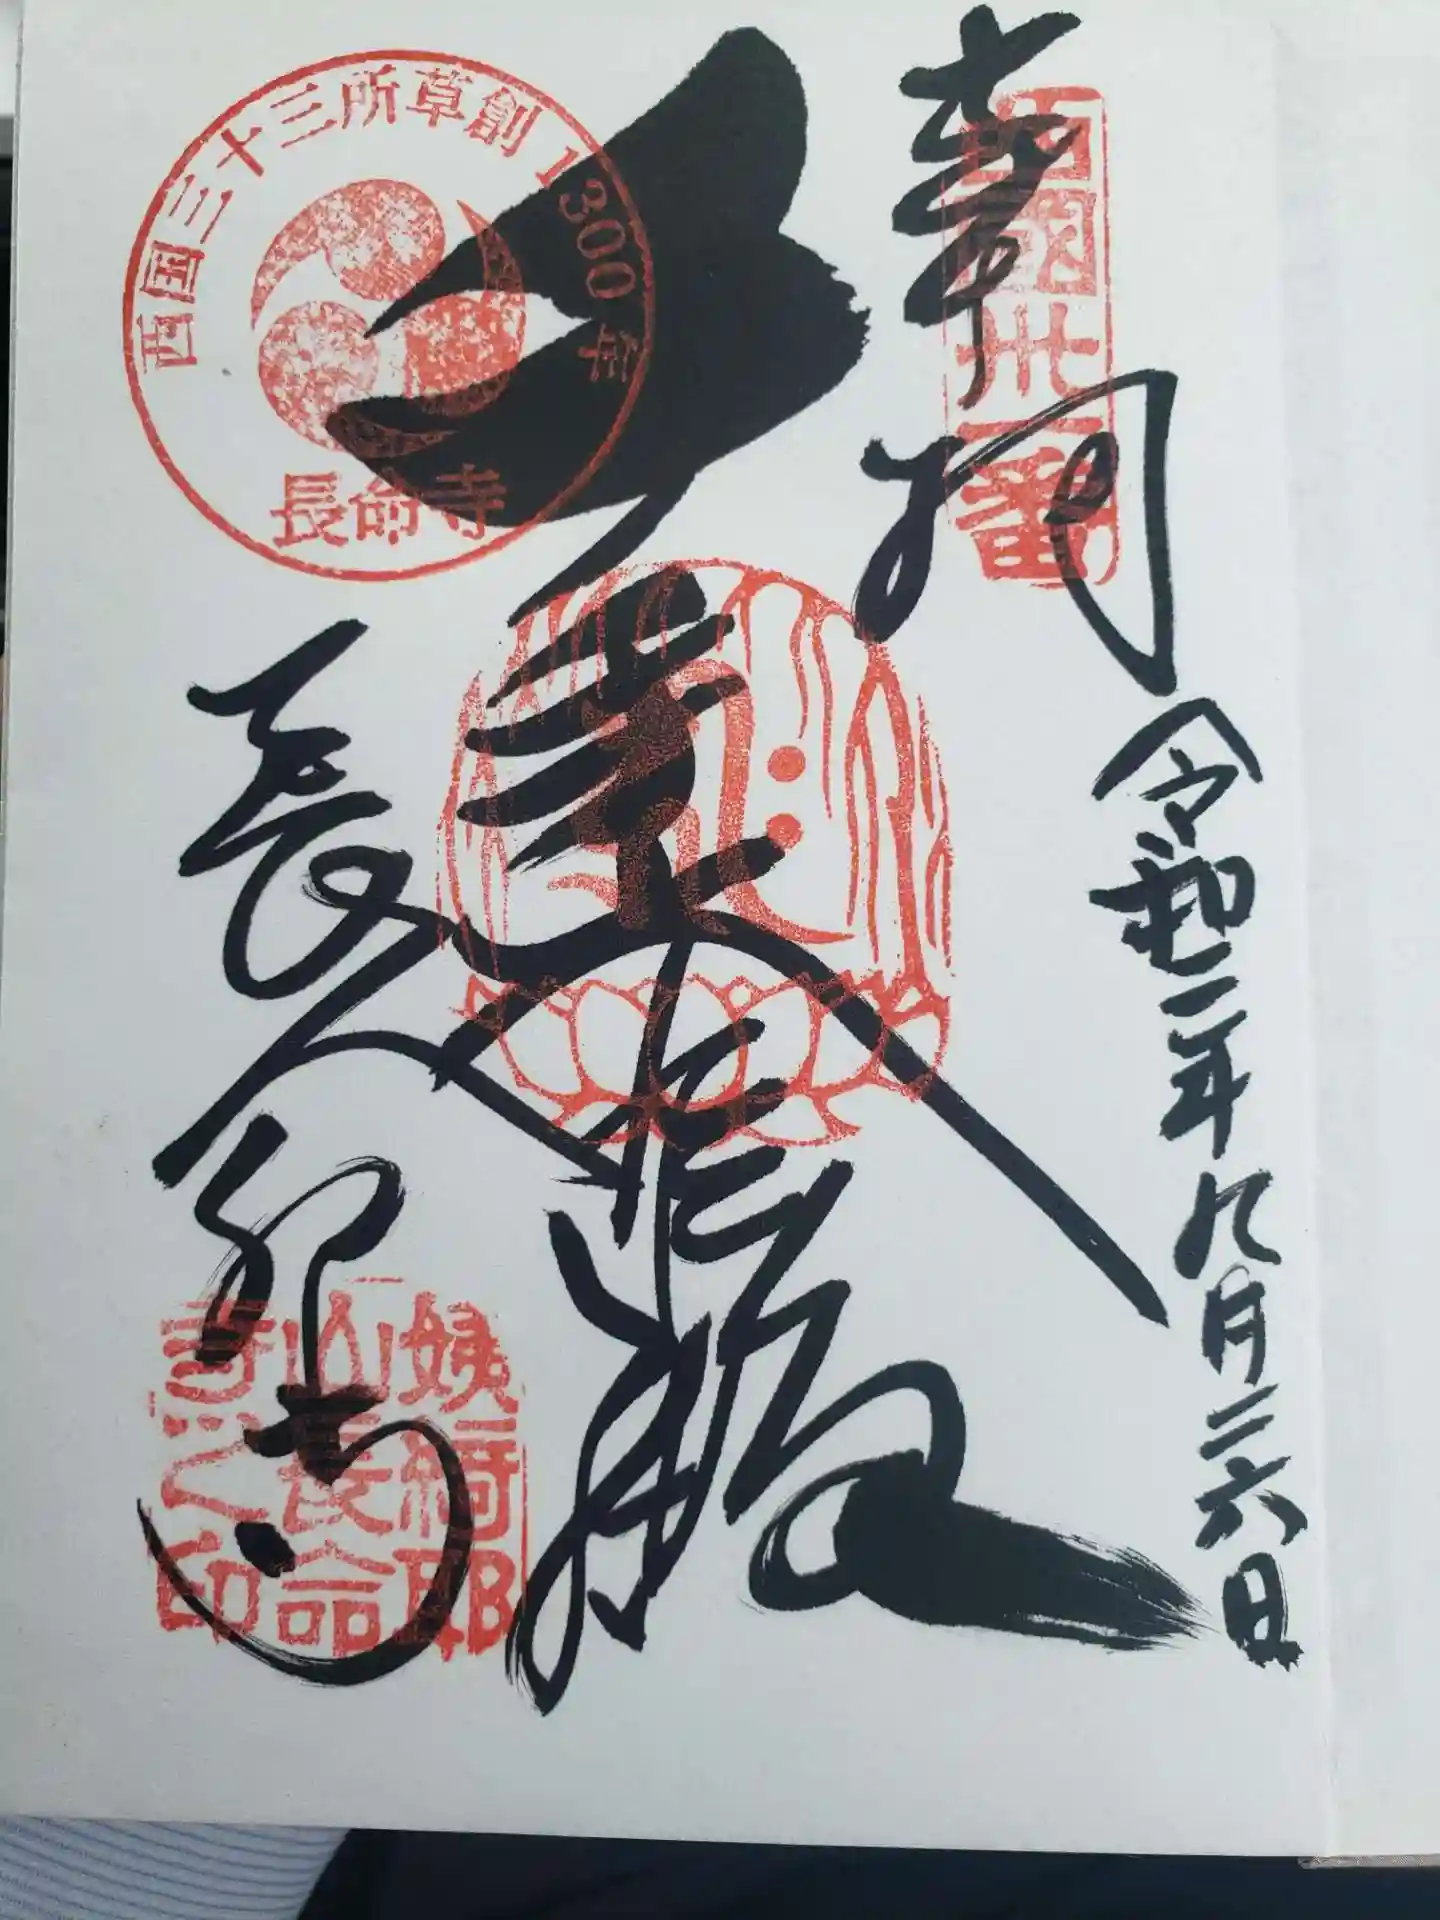 奉拝
西國卅一番
令和二年九月二六日
大悲殿
西国三十三所草創1300年
長命寺
長命寺
姨綺耶
山長命
寺之印